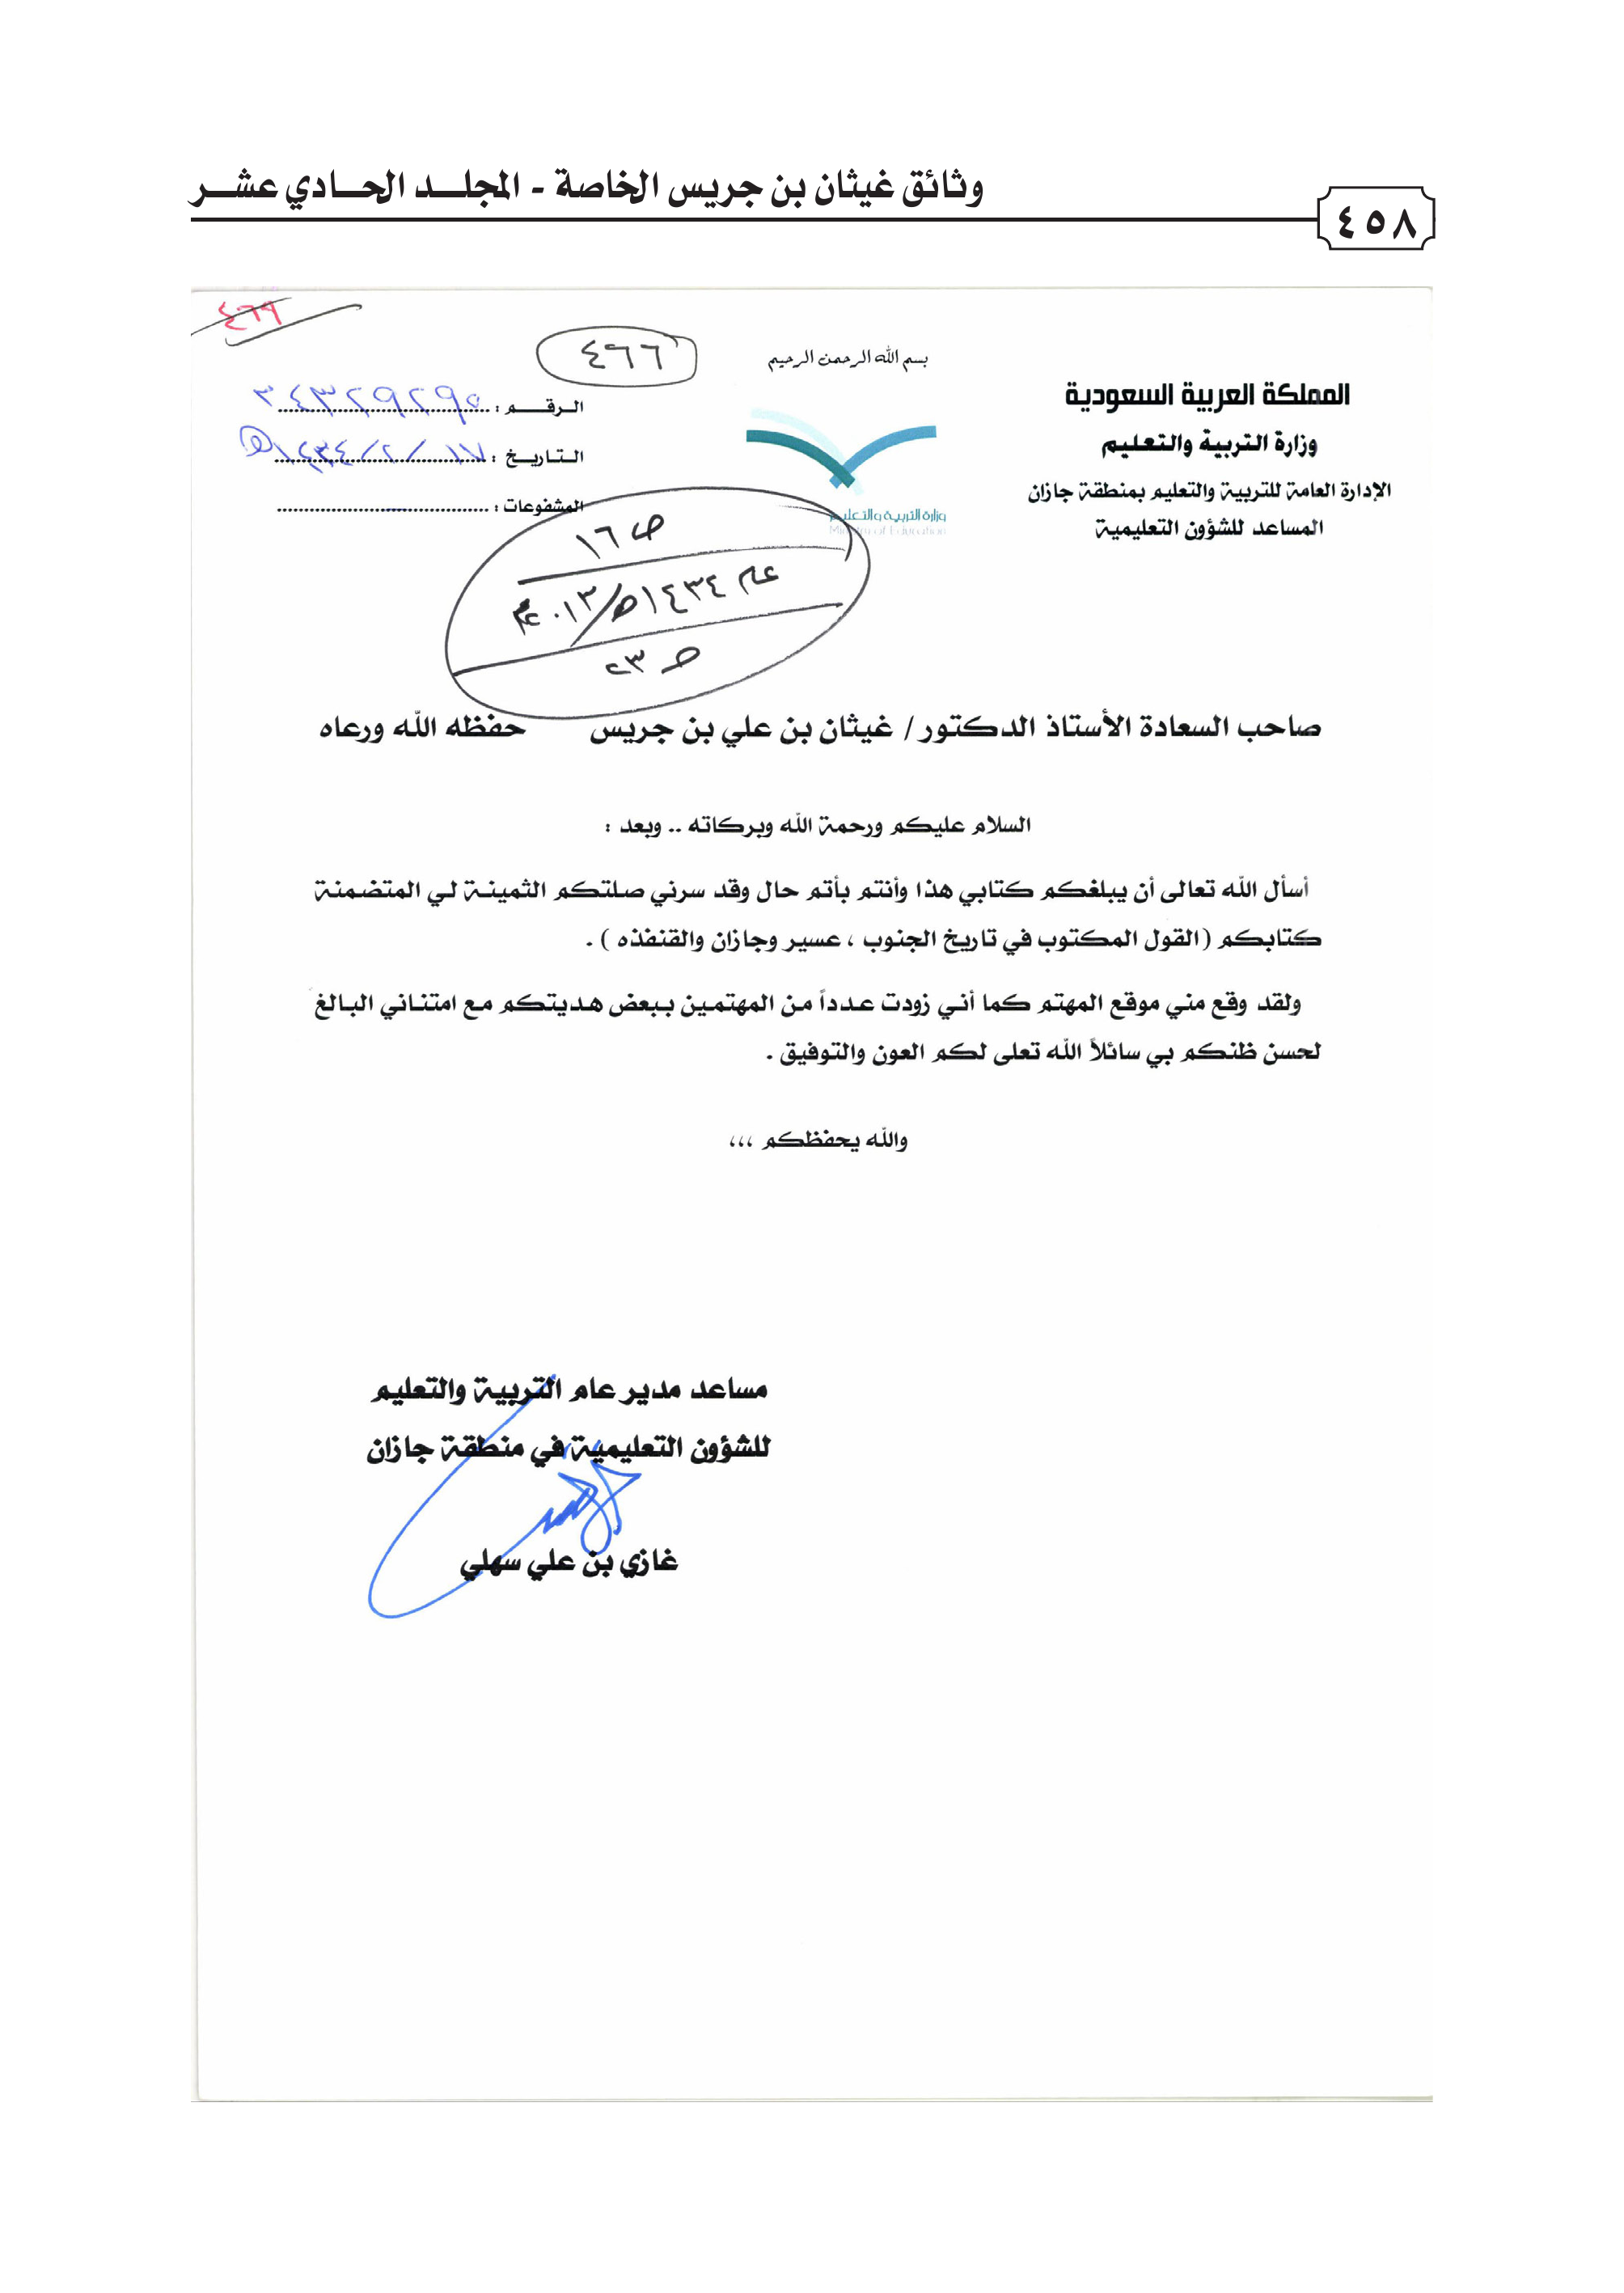 وثائق غيثان بن جريس الخاصة - المجلـــد الحـــادي عشـــر
٤٥٨
٤٦٩
٤٦٦
بسم الله الرحمن الرحيم
المملكة العربية السعودية
وزارة التربية والتعليم
الإدارة العامة للتربية والتعليم بمنطقة جازان
المساعد للشؤون التعليمية
الـرقـــم : ٣٤٣٢٩٢٩٥
الـتـاريــخ : ١٧ / ٢ / ١٤٣٤هـ
المشفوعات :
وزارة التربية والتعليم
Ministry of Education
ص ١٦
عام ١٤٣٤هـ/٢٠١٣م
ص ٢٣
صاحب السعادة الأستاذ الدكتور/ غيثان بن علي بن جريس حفظه الله ورعاه
السلام عليكم ورحمة الله وبركاته .. وبعد :
أسأل الله تعالى أن يبلغكم كتابي هذا وأنتم بأتم حال وقد سرني صلتكم الثمينة لي المتضمنة
كتابكم (القول المكتوب في تاريخ الجنوب ، عسير وجازان والقنفذه ) .
ولقد وقع مني موقع المهتم كما أني زودت عدداً من المهتمين ببعض هديتكم مع امتناني البالغ
لحسن ظنكم بي سائلاً الله تعلى لكم العون والتوفيق .
والله يحفظكم ،،،
مساعد مدير عام التربية والتعليم
للشؤون التعليمية في منطقة جازان
غازي بن علي سهلي